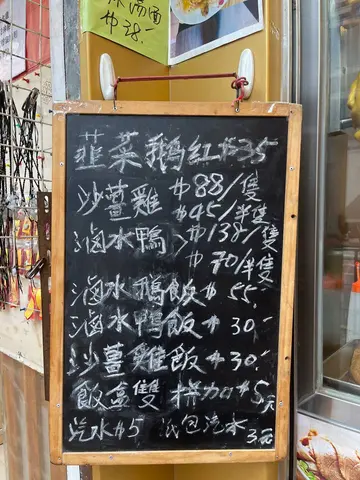 $38.-
韮菜鵝紅$35
沙薑雞 $88/隻
$45/半隻
滷水鴨 $138/隻
$70/半隻
滷水鵝飯$55.
滷水鴨飯$30.-
沙薑雞飯$30.-
飯盒雙拼加$5元
汽水$5 紙包汽水3元